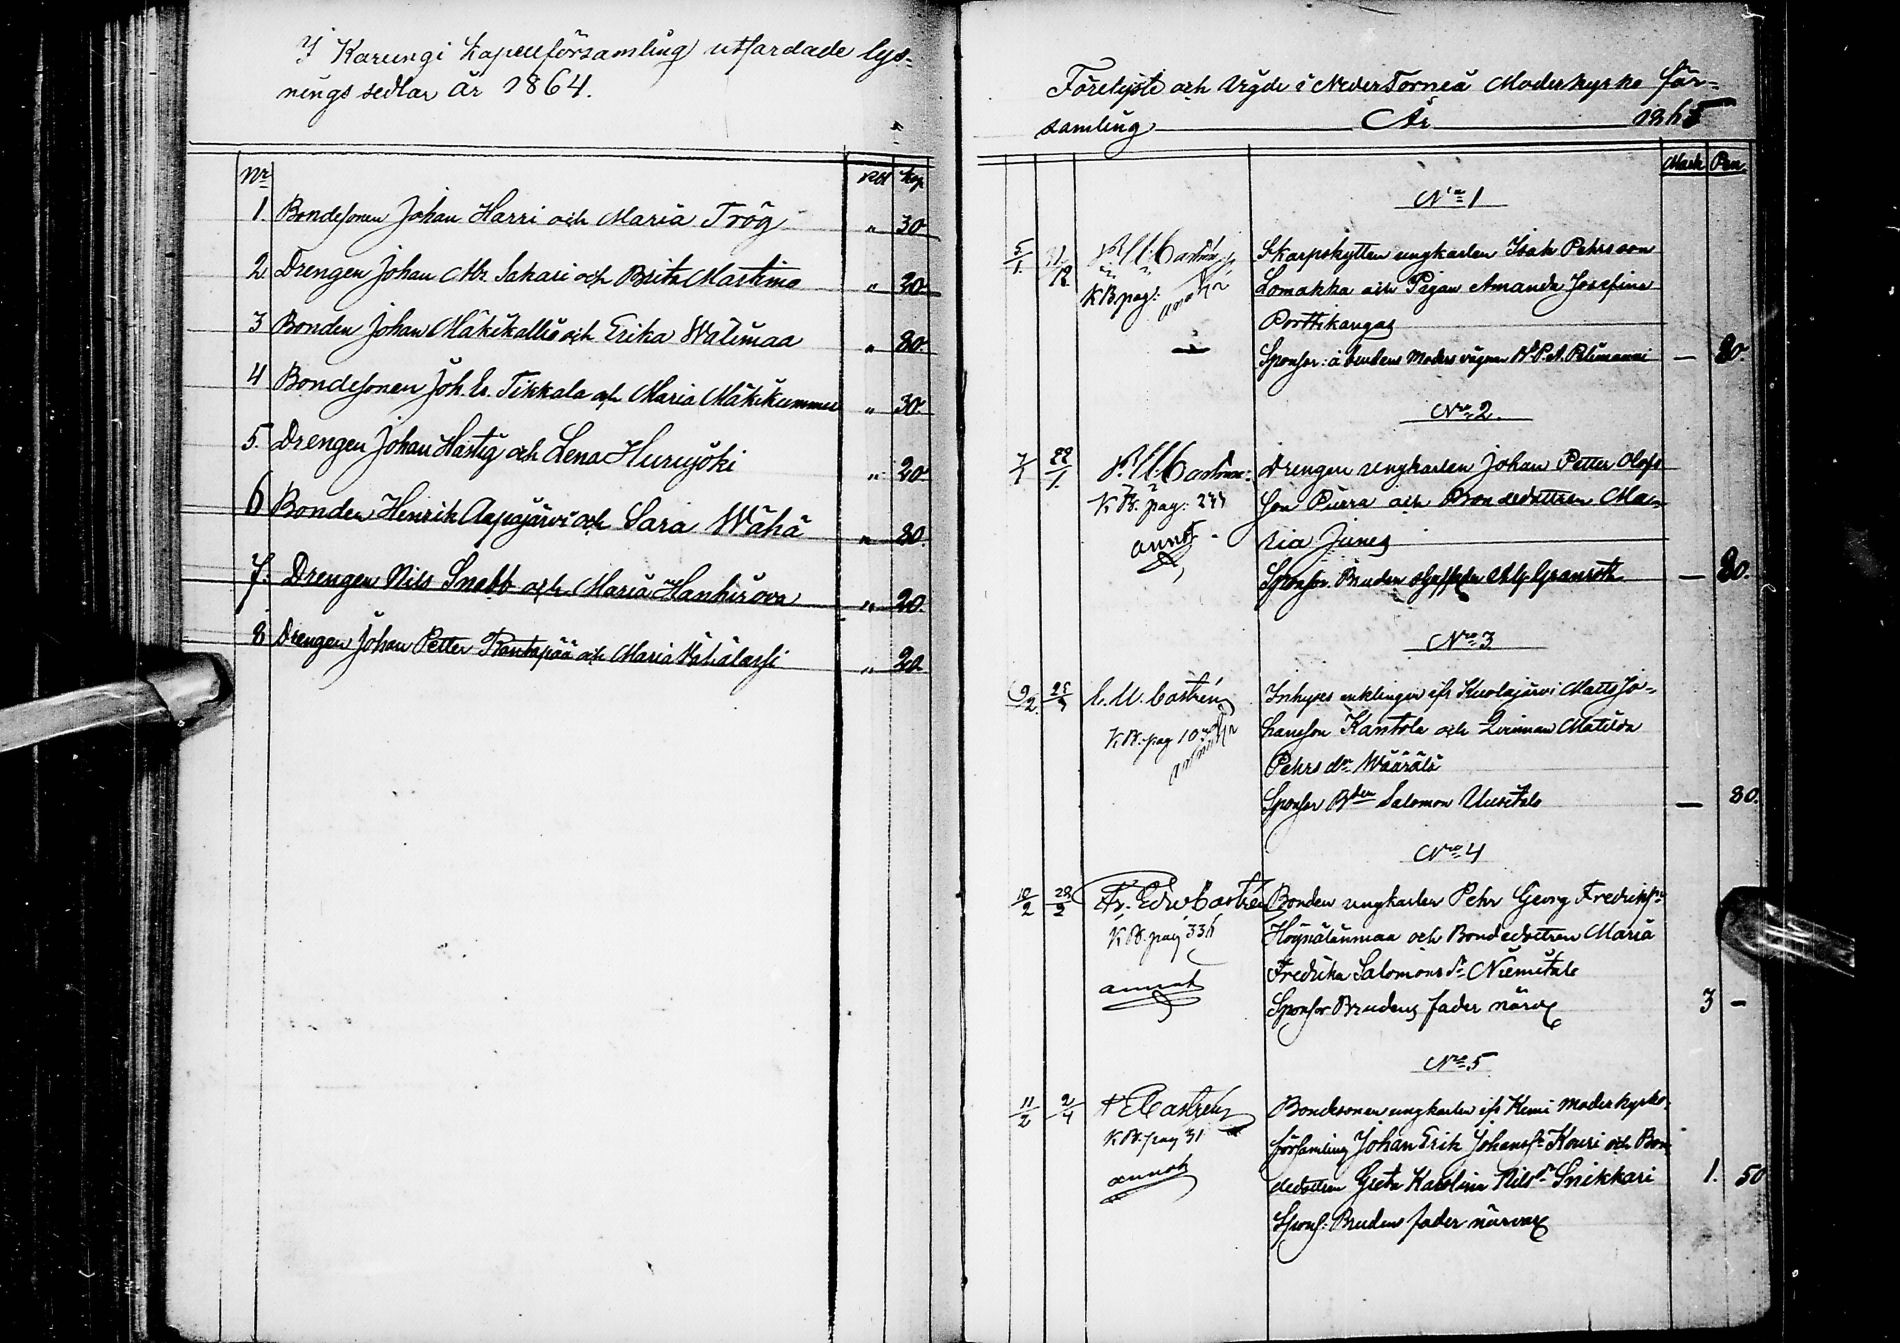 I Karungi kapellförsamling utfärdade lys-
nings sedlar år 1864.
Nr Rbl kop
1. Bondesonen Johan Harri och Maria Trög " 30
2. Drengen Johan Sakari och Brita Martimo " 20
3 Bonden Johan Mäkikallio och Erika Walimaa " 80.
4 Bondesonen Joh. Er. Tikkala och Maria Mäkikummu " 30.
5. Drengen Johan Hastig och Lena Hurujöki " 20
6 Bonden Henrik Aapajärvi och Sara Wähä " 80.
7. Drengen Nils Snebb och Maria Hanhirova " 20.
8. Drengen Johan Petter Rantapää och Maria " 20.
Förelyste och Vigde i Neder Torneå Moderkyrko för-
samling År 1865
Mark Pen.
No 1
5/1 Skarpskytten ungkarlen Isak Pehrsson
K B. pag: Lomakka och Pigan Amanda Josefina
annot Portikangas
Sponsor: å brudens Moders vägnar — 80
No 2.
7/1 22/1 Castrén Drengen ungkarlen Johan Petter Olofs
K. B. pag: son Purra och Bondedottren Ma-
annot ria Junes
Sponsor Bruden Granroth — 80.
No 3
9/2 C. M. Castrén Inhyses enklingen ifr Kuolajärvi Matts Jo-
K. B. pag 103 hansson Kantola och Qvinnan Matilda
annot Pehrs dr Wäärälä
Sponsor Bden Salomon Uusitalo — 80.
No 4
10/2 28/2 Fr. Edv Castrén Bonden ungkarlen Pehr Georg Fredrikss:n
K. B. pag 336 Höynälänmaa och Bondedottren Maria
annot Fredrika Salomons d:r Niemitalo
Sponsor Brudens fader närv 3 —
No 5
11/2 2/4 F E Castrén Bondesonen ungkarlen ifr Kemi moderkyrko-
K. B. pag 31 församling Johan Erik Johanss:n Kouri och Bon-
annot dedottren Greta Karolina Nils d:r Snikkari 1. 50
Spons: Brudens fader närvar